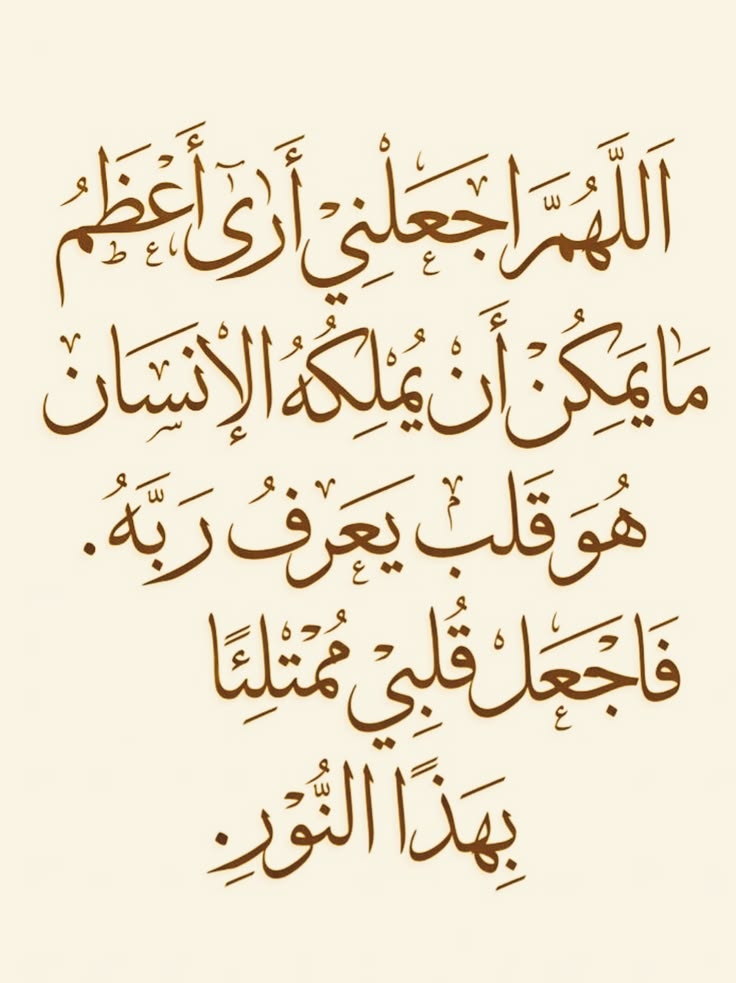 اَللَّهُمَّ اجْعَلْنِي أَرَىٰ أَعْظَمُ
مَا يَمْكِنُ أَنْ يُمْلِكُهُ الإِنْسَانْ
هُوَ قَلْب يَعْرِفُ رَبَّهُ .
فَاجْعَل قُلبِيْ مُمْتلِئًا
بِهَذًا النُّوْرِ.